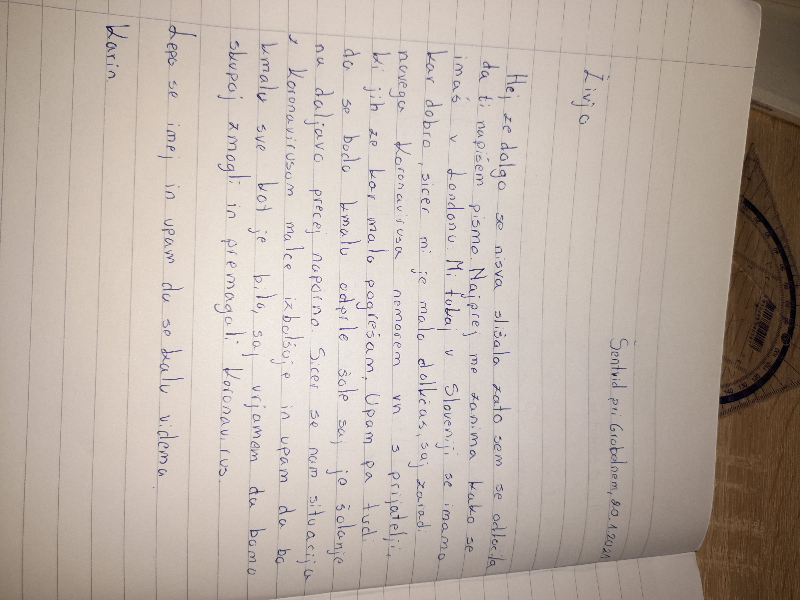 Šentvid pri Grobelnem, 20.1.2021
Živjo
Hej že dolgo se nisva slišala zato sem se odločila
da ti napišem pismo. Najprej me zanima kako se
imaš v Londonu. Mi tukaj v Sloveniji se imamo
kar dobro, sicer mi je malo dolkčas, saj zarad
novega koronavirusa nemorem vn s prijatelji,
ki jih že kar malo pogrešam. Upam pa tudi
da se bodo kmalu odprle šole saj je šolanje
na daljavo precej naporno. Sicer se nam situacija
s koronavirusom malce izbolšuje in upam da bo
kmalu sve kot je bilo, saj vrjamem da bomo
skupaj zmagli in premagali koronavirus.
Lepo se imej in upam da se kmalu videma.
Karin